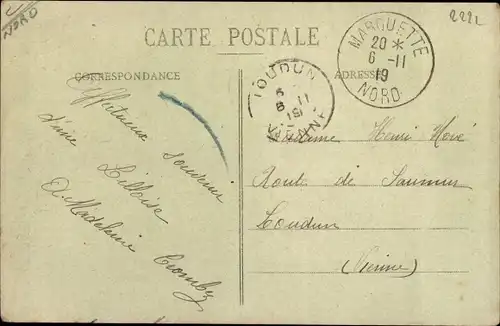 NORD
2221
CARTE POSTALE
CORRESPONDANCE
ADRESSE
MARQUETTE
20 *
6 - 11
19
NORD
LOUDUN
VIENNE
Affectueux souvenir
d'une Lilloise
Madeleine
Madame Henri
Route de Saumur
Loudun
(Vienne)